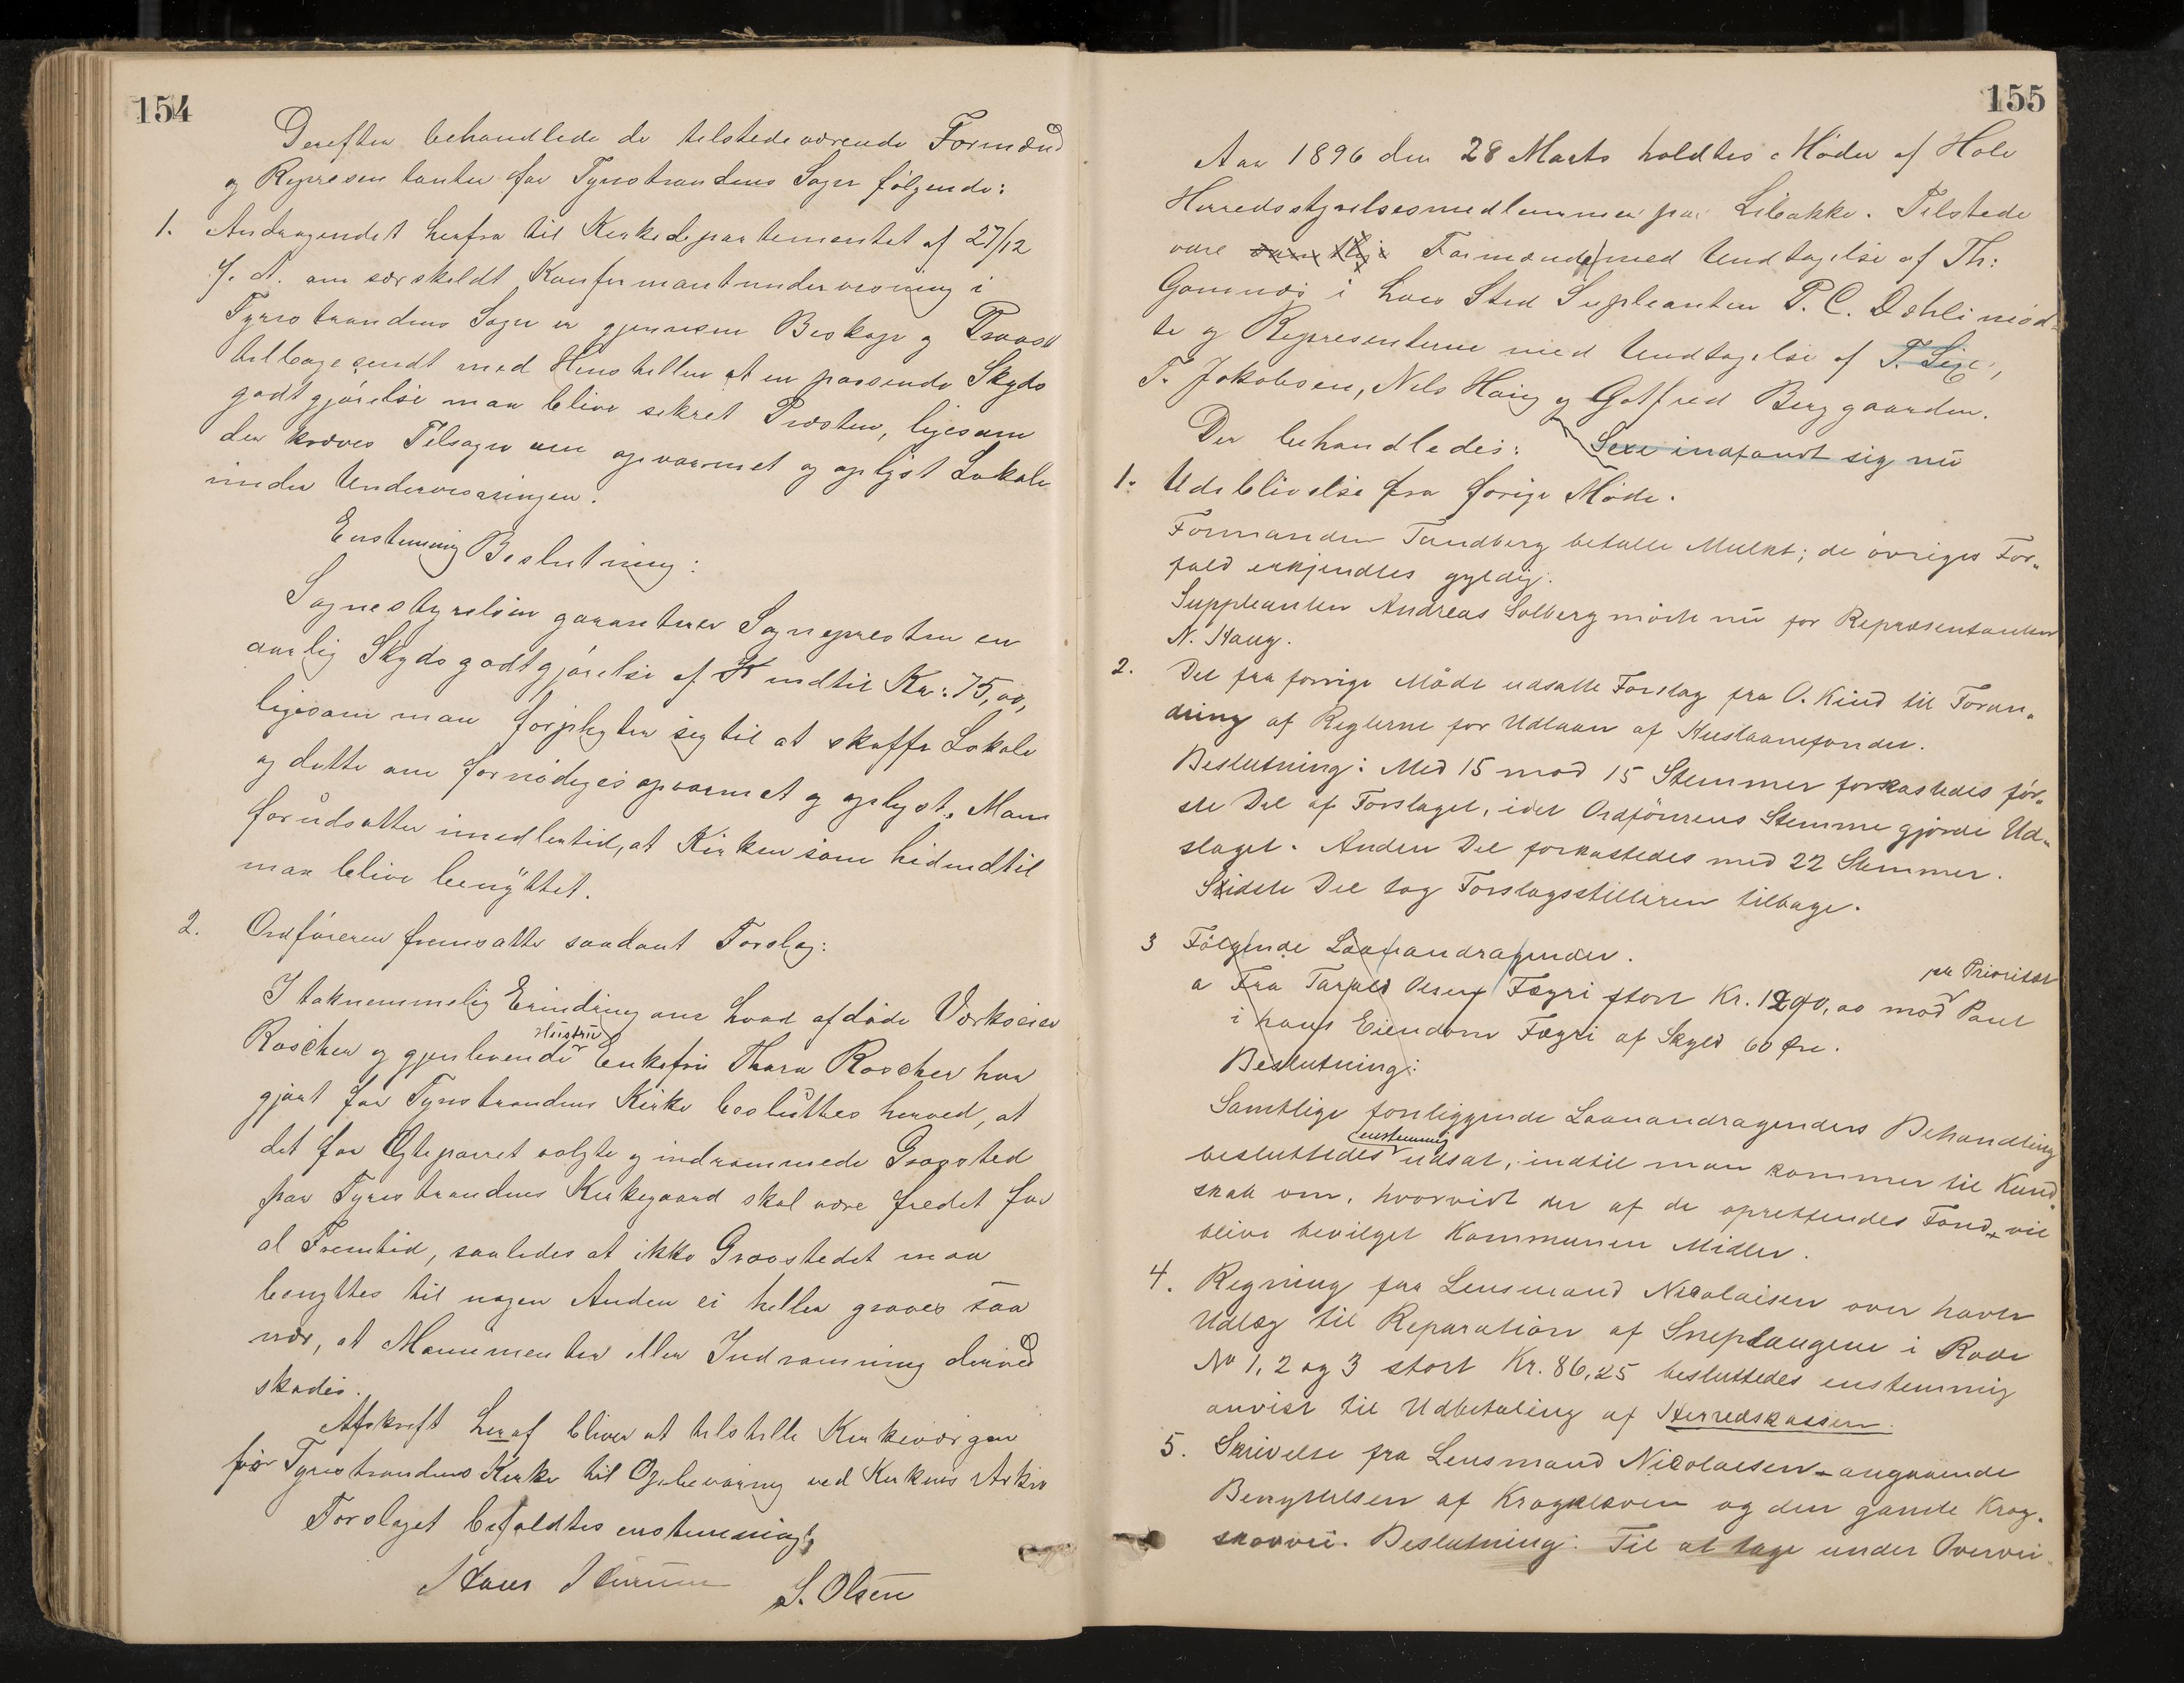 154
Derefter behandlede de tilstedeværende Formænd
og Repræsentanter for Tyristrandens Sogn følgende:
1. Andragendet herfra til Kirkedepartementet af 27/12
f. A. om særskildt Konfirmantundervisning i
Tyristrandens Sogn er gjennem Biskop og Provst
tilbagesendt med Henstillen at en passende Skyds
godtgjørelse maa blive sikret Præsten, ligesom
der kræves Tilsagn om opvarmet og oplyst Lokale
under Undervisningen.
Enstemmig Beslutning:
Sognestyrelsen garanterer Sognepresten en
aarlig Skydsgodtgjørelse af indtil Kr: 75,00,
ligesom man forpligter sig til at skaffe Lokale
og dette om fornødiges opvarmet og oplyst. Man
forudsætter imedlertid, at Kirken som hidindtil
maa blive benyttet.
2. Ordføreren fremsatte saadant Forslag:
I taknemmelig Erindring om hvad afdøde Værkseier
Roscher og gjenlevende Hustru Enkefru Thora Roscher har
gjort for Tyristrandens Kirke besluttes herved, at
det for Ægteparret valgte og indrammede Gravsted
paa Tyristrandens Kirkegaard skal være fredet for
al Fremtid, saaledes at ikke Gravstedet maa
benyttes til nogen Anden ei heller graves saa
nær, at Monumenter eller Indramning derved
skades.
Afskrift heraf bliver at tilstille Kirkeværgen
for Tyristrandens Kirke til Opbevaring ved Kirkens Arkiv
Forslaget bifaldtes enstemmig
S. Olsen
155
Aar 1896 den 28 Marts holdtes Møde af Hole
Herredsstyrelsesmedlemmer paa Libakke. Tilstede
vare samtlige Formænd med Undtagelse af Th:
Gomnæs i hvis Sted Supleanten P. C. Dæhli mød-
te og Representerne med Undtagelse af T. Sexe,
T. Jakobsen, Nils Haug og Gotfred Berggaarden.
Der behandledes: Sexe indfandt sig nu
1. Udeblivelse fra forige Møde.
Formanden Tandberg betalte Mulkt; de øvriges For-
fald erkjendtes gyldig.
Suppleanten Andreas Solberg mødte nu for Repræsentanten
N. Haug.
2. Det fra forrige Møde udsatte Forslag fra O. Kind til Foran-
dring af Reglerne for Udlaan af Huslaanefondet.
Beslutning: Med 15 mod 15 Stemmer forkastedes før-
ste Del af Forslaget, idet Ordførerens Stemme gjorde Ud-
slaget. Anden Del forkastedes med 22 Stemmer.
Sidste Del tog Forslagsstilleren tilbage.
3 Følgende Laaneandragender.
a Fra Olsen Fægri stort Kr. 1200,00 mod 1ste Prioritet Pant
i hans Eiendom Fægri af Skyld 60 Øre.
Beslutning:
Samtlige foreliggende Laaneandragenders Behandling
besluttedes enstemmig udsat, indtil man kommer til Kund-
skab om, hvorvidt der af de oprettendes Fond vil
blive bevilget Kommunen Midler.
4. Regning fra Lensmand Nicolaisen over havte
Udlæg til Reparation af Sneplougene i Rode
No 1, 2 og 3 stort Kr. 86,25 besluttedes enstemmig
anvist til Udbetaling af Herredskassen.
5. Skrivelse fra Lensmand Nicolaisen angaaende
Benyttelsen af Krogkleven og den gamle Krog-
skovvei. Beslutning: Til at tage under Overvei-